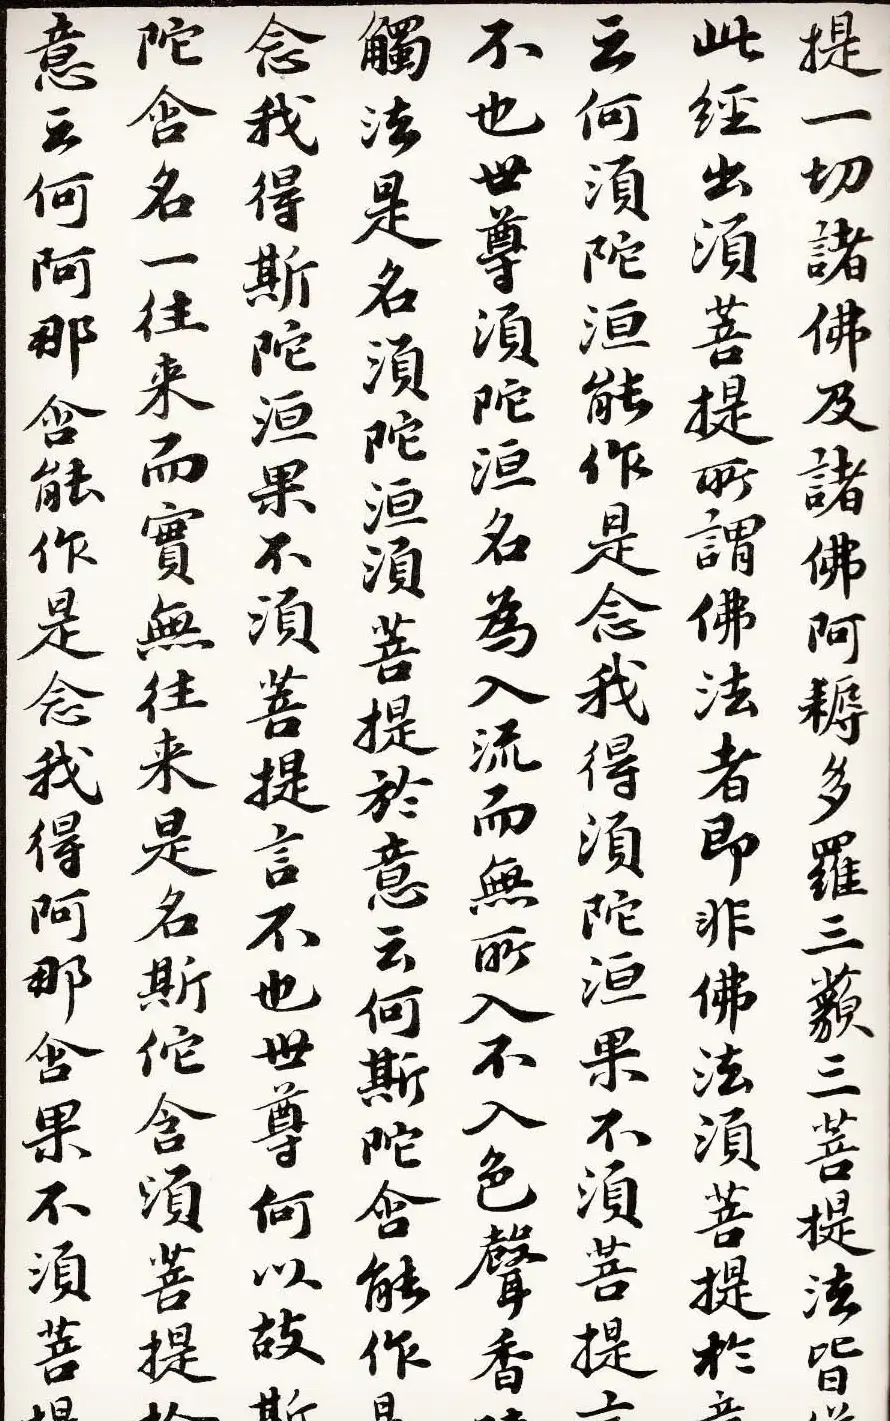 提一切諸佛及諸佛阿耨多羅三藐三菩提法皆
此經出須菩提所謂佛法者即非佛法須菩提於
云何須陀洹能作是念我得須陀洹果不須菩提
不也世尊須陀洹名為入流而無所入不入色聲香
觸法是名須陀洹須菩提於意云何斯陀含能作
念我得斯陀洹果不須菩提言不也世尊何以故斯
陀含名一往来而實無往来是名斯佗含須菩提
意云何阿那含能作是念我得阿那含果不須菩提